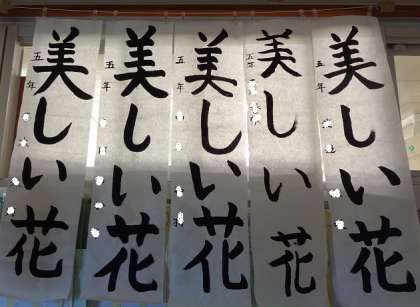 美しい花
五年
美しい花
五年
美しい花
五年
美しい花
五年
美しい花
五年